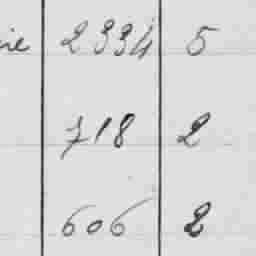 2334 5
718 2
606 2